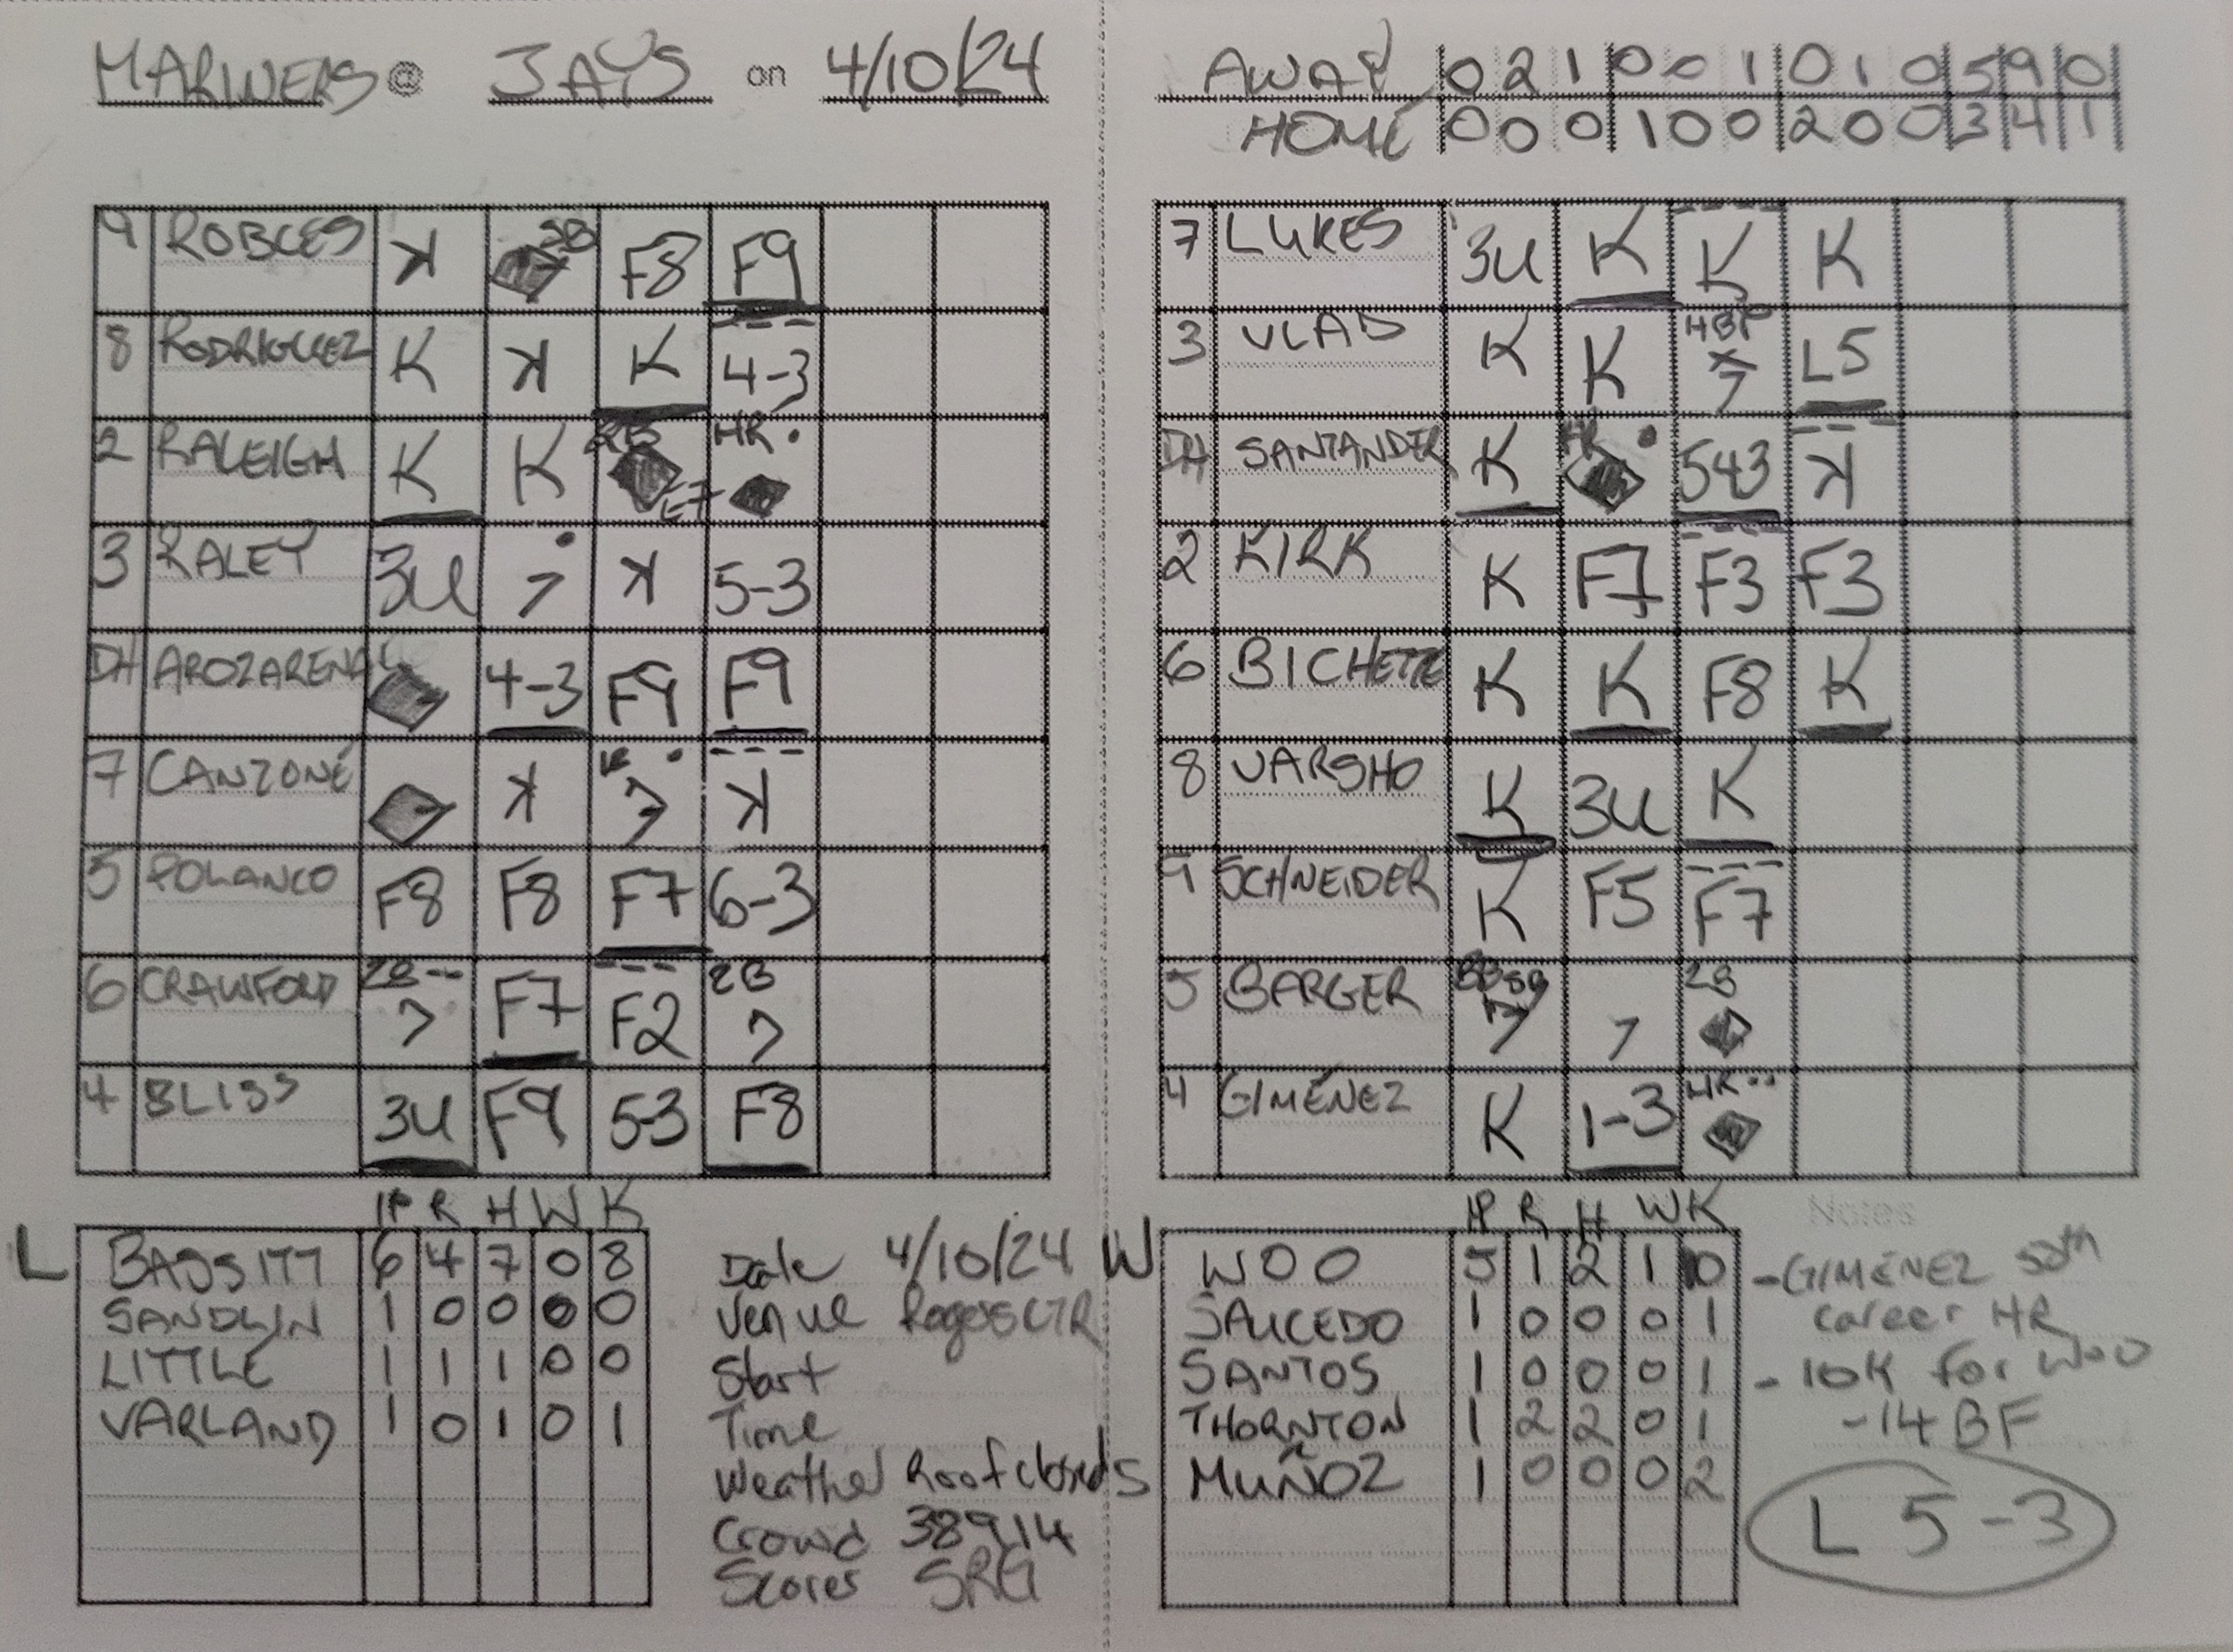 MARINERS @ JAYS on 4/10/24
AWAY 0 2 1 0 0 1 0 1 0 5 9 0
HOME 0 0 0 1 0 0 2 0 0 3 4 1
9 ROBLES K SB F8 F9
8 RODRIGUEZ K K K 4-3
2 RALEIGH K K 2B E7 HR
3 RALEY 3U 7 K 5-3
DH AROZARENA 4-3 F9 F9
7 CANZONE K 7 K
5 POLANCO F8 F8 F7 6-3
6 CRAWFORD 2B 7 F7 F2 2B 7
4 BLISS 3U F9 53 F8
7 LUKES 3U K K K
3 VLAD K K HBP 7 L5
DH SANTANDER K HR 543 K
2 KIRK K F7 F3 F3
6 BICHETTE K K F8 K
8 VARSHO K 3U K
9 SCHNEIDER K F5 F7
5 BARGER BB SB 7 7 2B
4 GIMÉNEZ K 1-3 HR
IP R H W K
L BASSITT 6 4 7 0 8
SANDLIN 1 0 0 0 0
LITTLE 1 1 1 0 0
VARLAND 1 0 1 0 1
Date 4/10/24
Venue Rogers CTR
Start
Time
Weather Roof closed
Crowd 38914
Scorer SRG
IP R H W K
W WOO 5 1 2 1 10
SAUCEDO 1 0 0 0 1
SANTOS 1 0 0 0 1
THORNTON 1 2 2 0 1
S MUÑOZ 1 0 0 0 2
Notes
-GIMÉNEZ 50th
career HR
- 10K for WOO
-14 BF
L 5-3